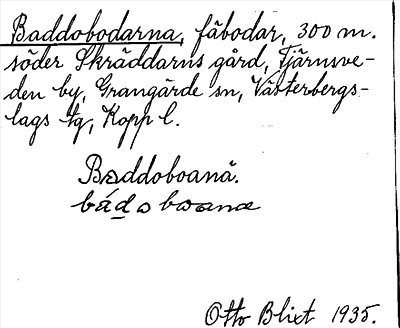 Baddobodarna, fäbodar, 300 m.
söder Skräddarns gård, Tjärnsve-
den by, Grangärde sn, Västerbergs-
lags tg, Kopp l.
Baddoboanä.
Otto Blixt 1935.